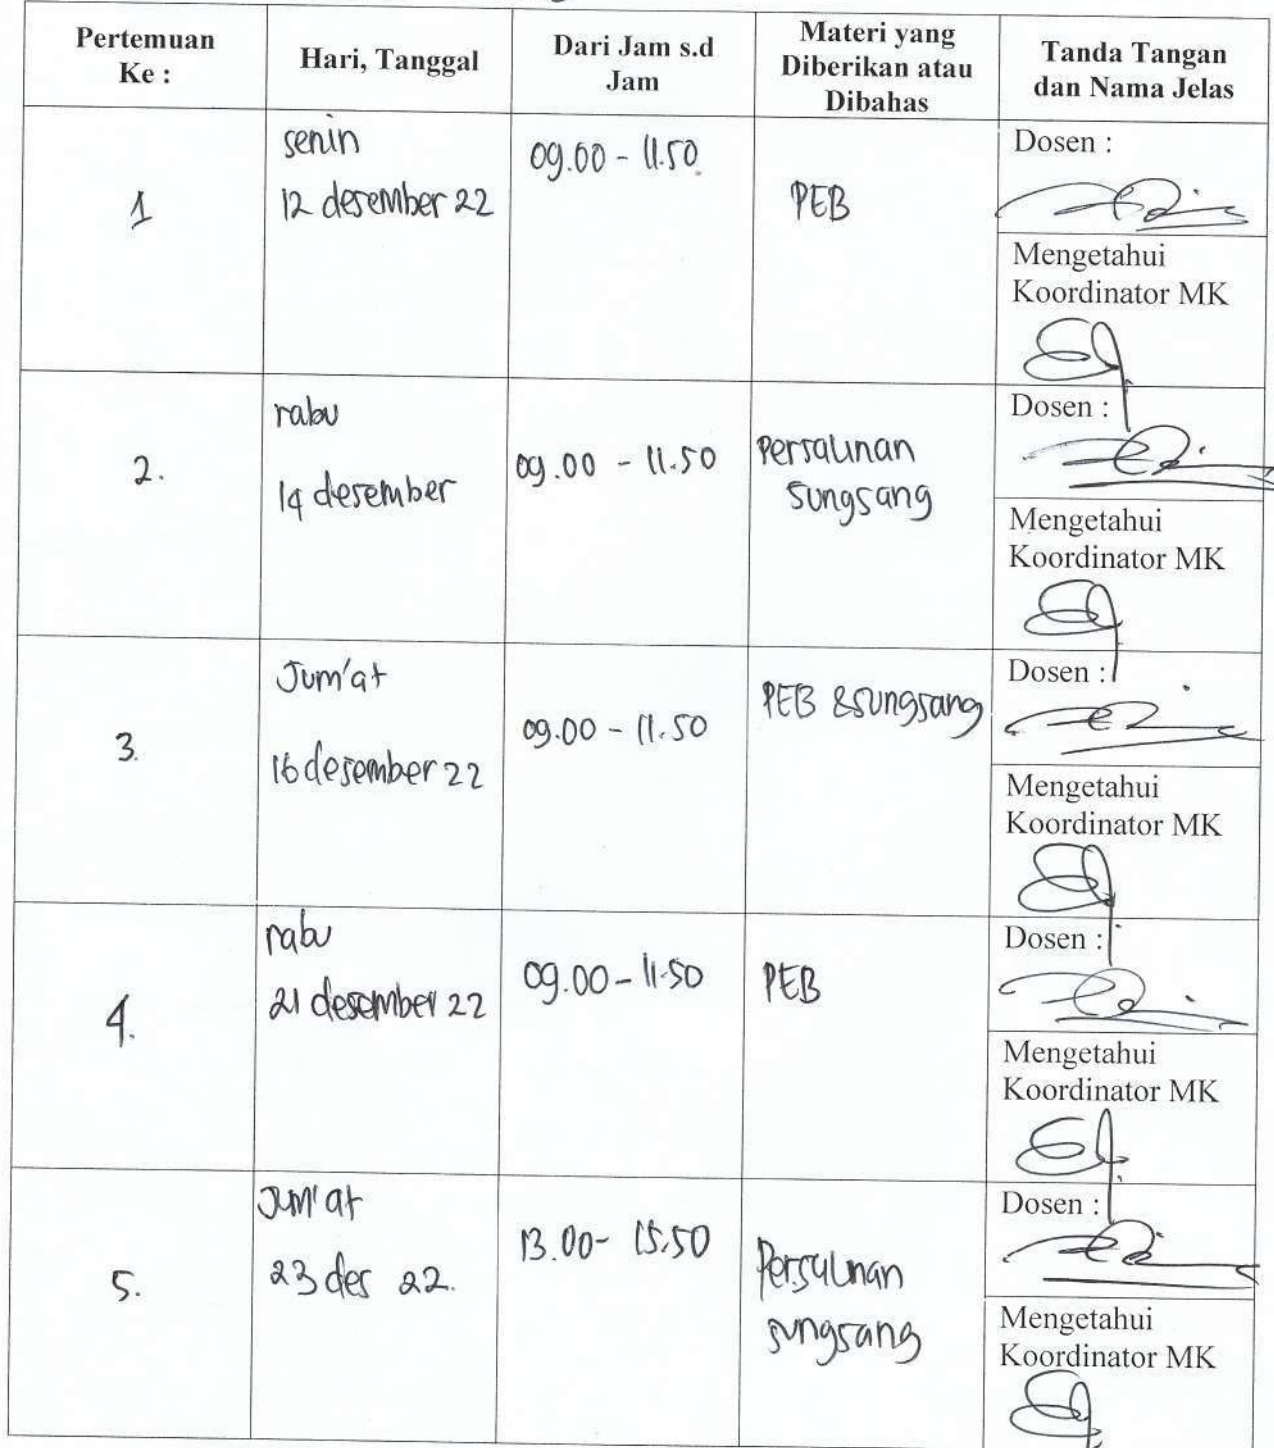 Pertemuan
Ke :
Hari, Tanggal
Dari Jam s.d
Jam
Materi yang
Diberikan atau
Dibahas
Tanda Tangan
dan Nama Jelas
1
senin
12 desember 22
09.00 - 11.50
PEB
Dosen :
Mengetahui
Koordinator MK
2.
rabu
14 desember
09.00 - 11.50
Persalinan
Sungsang
Dosen :
Mengetahui
Koordinator MK
3.
Jum'at
16 desember 22
09.00 - 11.50
PEB & sungsang
Dosen :
Mengetahui
Koordinator MK
4.
rabu
21 desember 22
09.00 - 11.50
PEB
Dosen :
Mengetahui
Koordinator MK
5.
Jum'at
23 des 22.
13.00 - 15.50
Persalinan
sungsang
Dosen :
Mengetahui
Koordinator MK